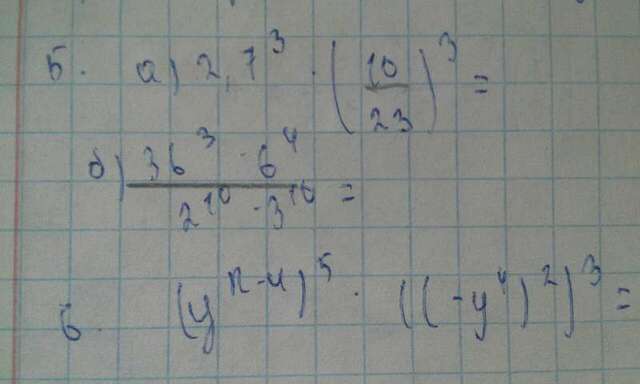 5. а) 2,7³ · (10/23)³ =
б) 36³ · 6⁴ / 2¹⁰ · 3¹⁰ =
6. (yⁿ⁻⁴)⁵ · ((-y⁴)²)³ =